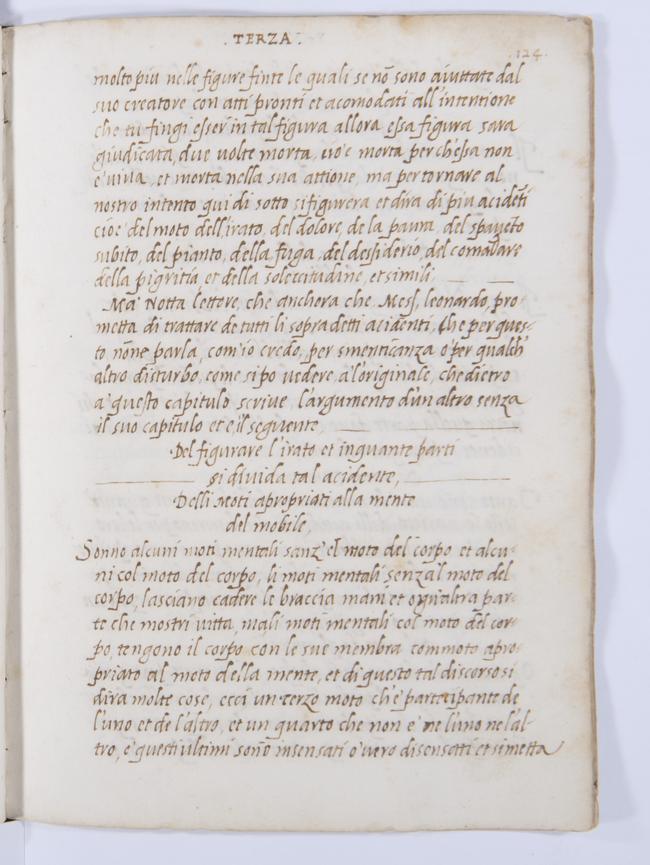 . TERZA .
. 124 .
molto piu nelle figure finte le quali se nõ sono aiuttate dal
suo creatore con atti pronti et acomodati all'intentione
che tu fingi esser in tal figura allora essa figura sara
giudicata, due volte morta, cioe morta perch'essa non
e viva, et morta nella sua attione, ma per tornare al
nostro intento qui di sotto si figurera et dira di piu acidẽti
cioe' del moto dell'irato, del dolore, de la paura, del spavẽto
subito, del pianto, della fuga, del desiderio, del comãdare
della pigritia et della solecitudine, et simili;
Ma' Notta lettore, che anchora che Mess, leonardo, pro-
metta di trattare de tutti li sopra detti acidenti, che per ques-
to nõne parla, com'io credo, per smenticanza o' per qualch'
altro disturbo, come si po vedere a l'originale, che dietro
a' questo capitulo scrive, l'argumento d'un altro senza
il suo capitulo et e' il seguente
Del figurare l'irato et in quante parti
si divida tal acidente,
Delli Moti apropriati alla mente
del mobile,
Sonno alcuni moti mentali sanz' el moto del corpo et alcu-
ni col moto del corpo, li moti mentali senza'l moto del
corpo, lasciano cadere le braccia mani et ogni altra par-
te che mostri vitta, ma li moti mentali col moto del cor-
po, tengono il corpo con le sue membra com moto apro-
priato al moto della mente, et di questo tal discorso si
dira molte cose, ecci un terzo moto ch'e' participante de
l'uno et de l'altro, et un quarto che non e' ne l'uno ne l'al-
tro, e' questi ultimi sonõ insensati o' vero disensatti et si metta